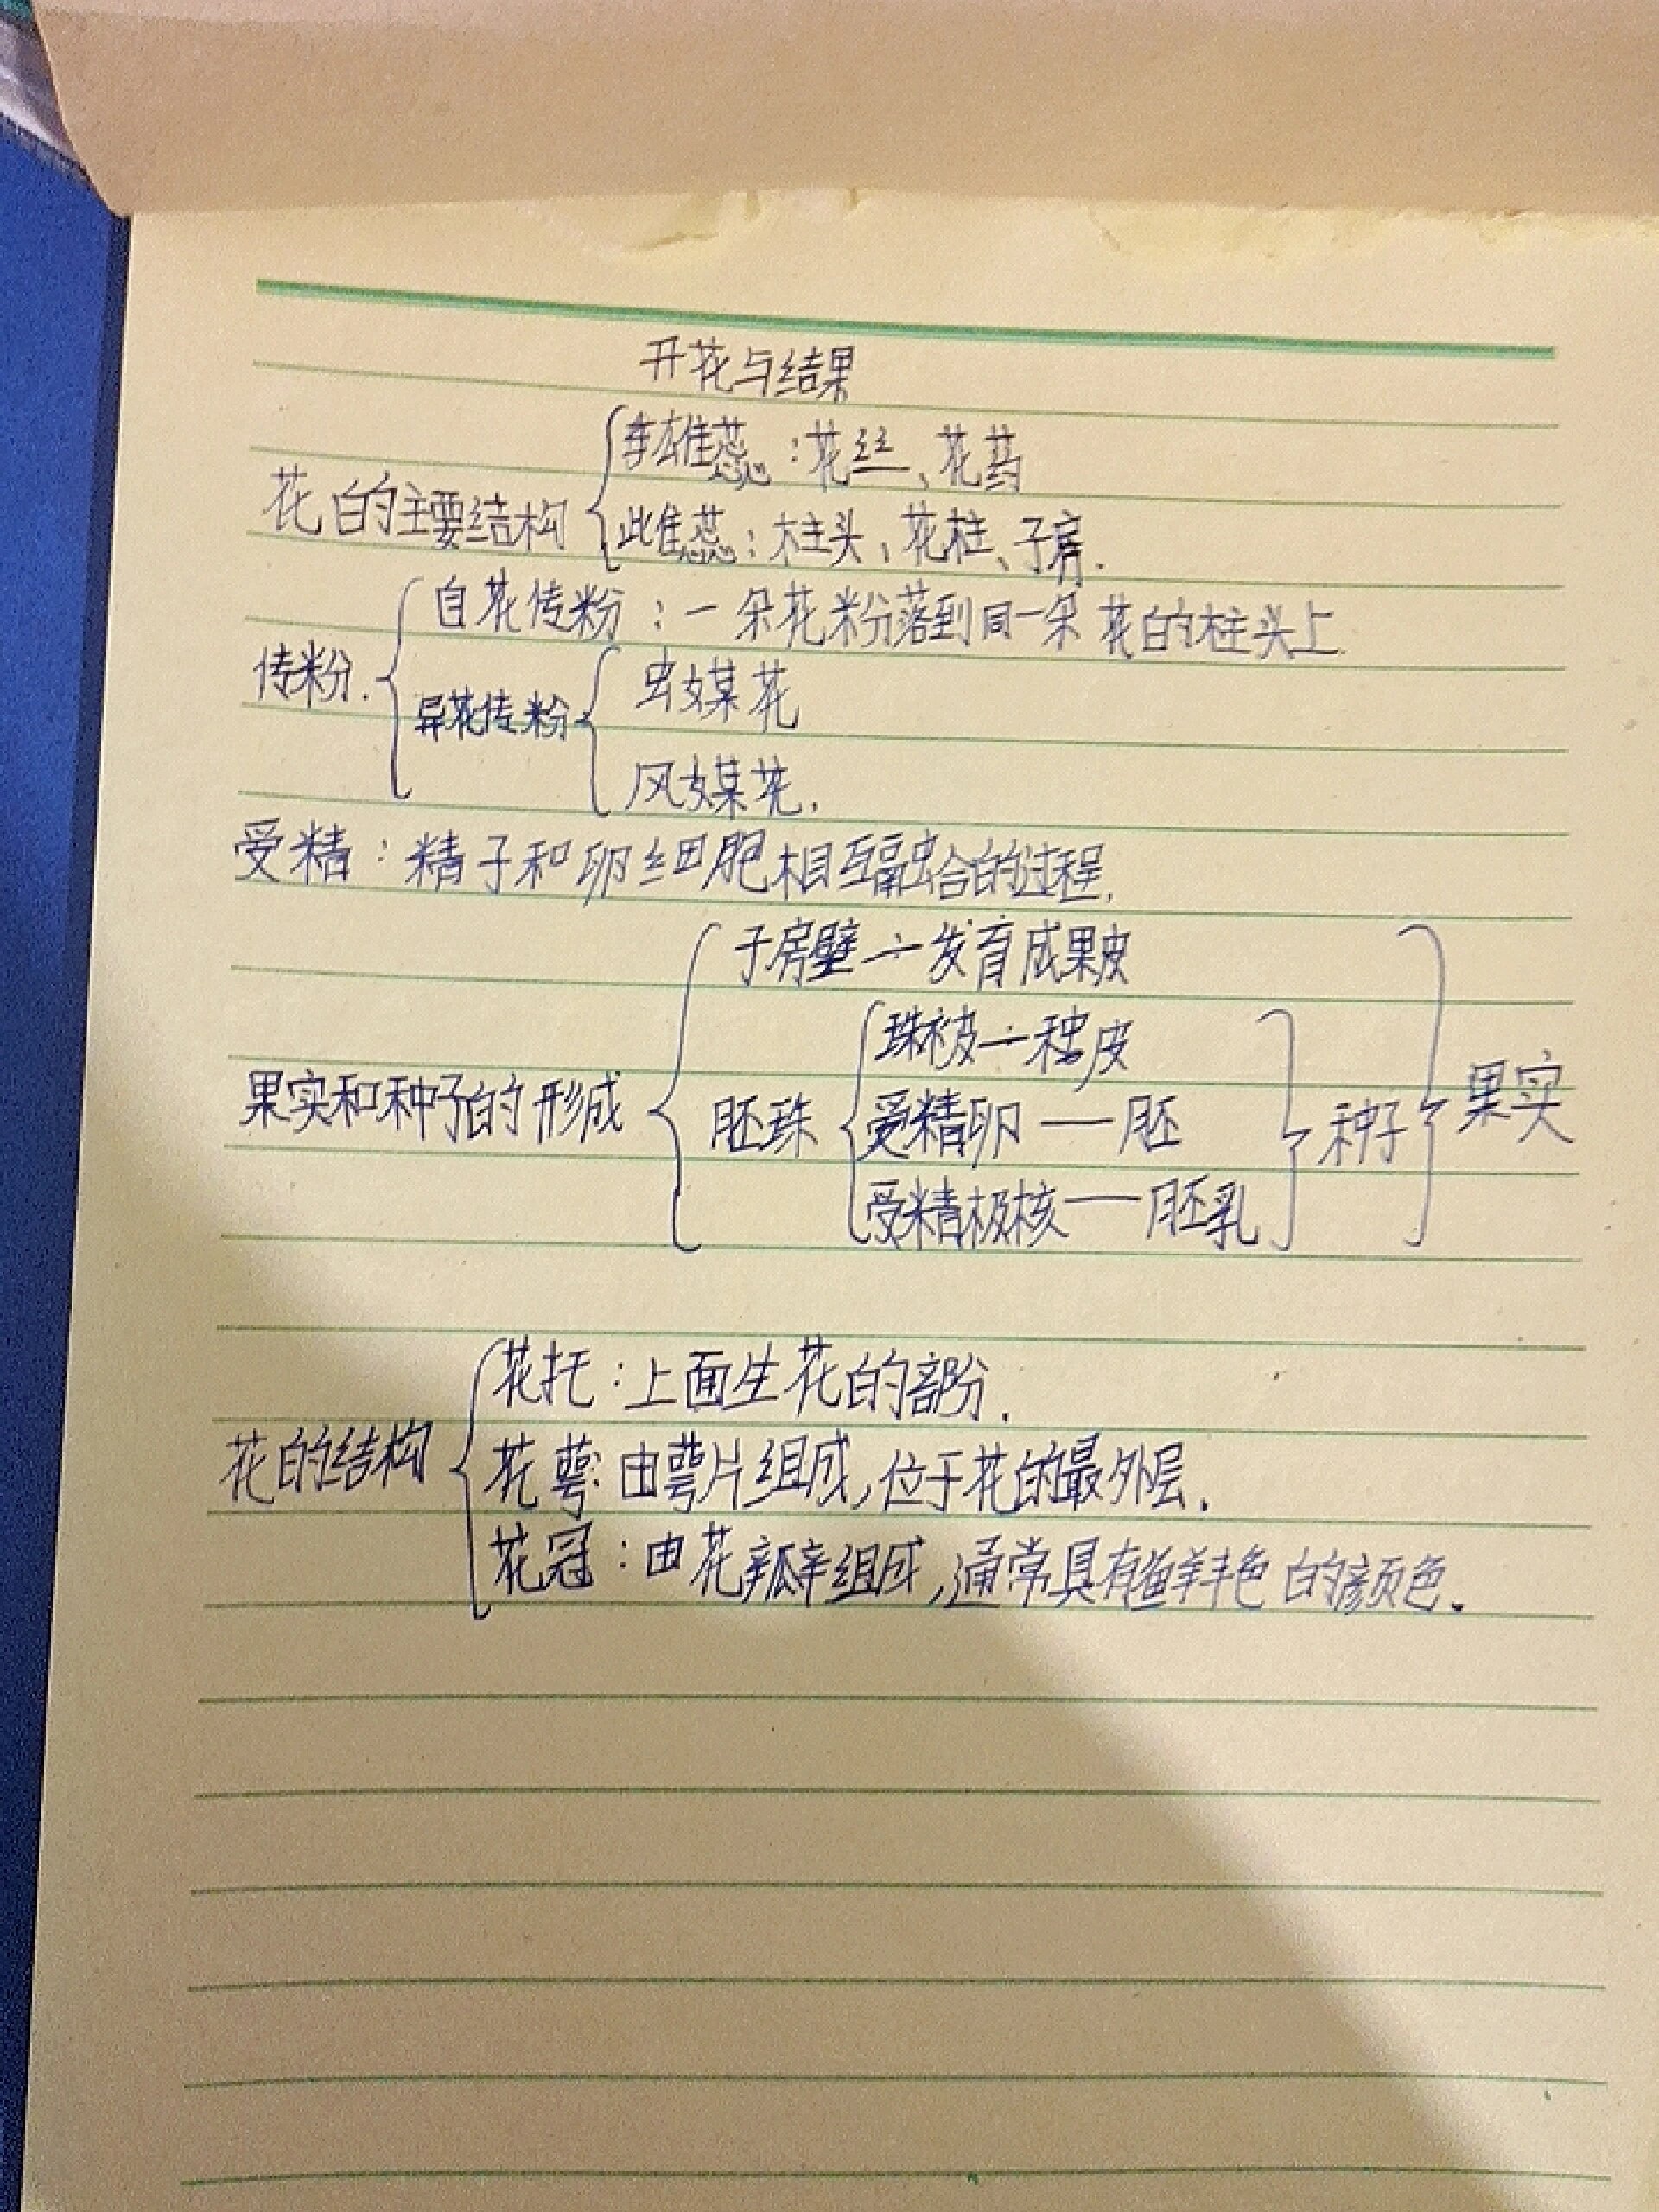 开花与结果
花的主要结构
雄蕊：花丝、花药
雌蕊：柱头、花柱、子房.
传粉.
自花传粉：一朵花粉落到同一朵花的柱头上
异花传粉
虫媒花
风媒花.
受精：精子和卵细胞相互融合的过程.
果实和种子的形成
子房壁—发育成果皮
胚珠
珠被—种皮
受精卵—胚
受精极核—胚乳
种子
果实
花的结构
花托：上面生花的部分.
花萼：由萼片组成,位于花的最外层.
花冠：由花瓣组成,通常具有鲜艳色的颜色.